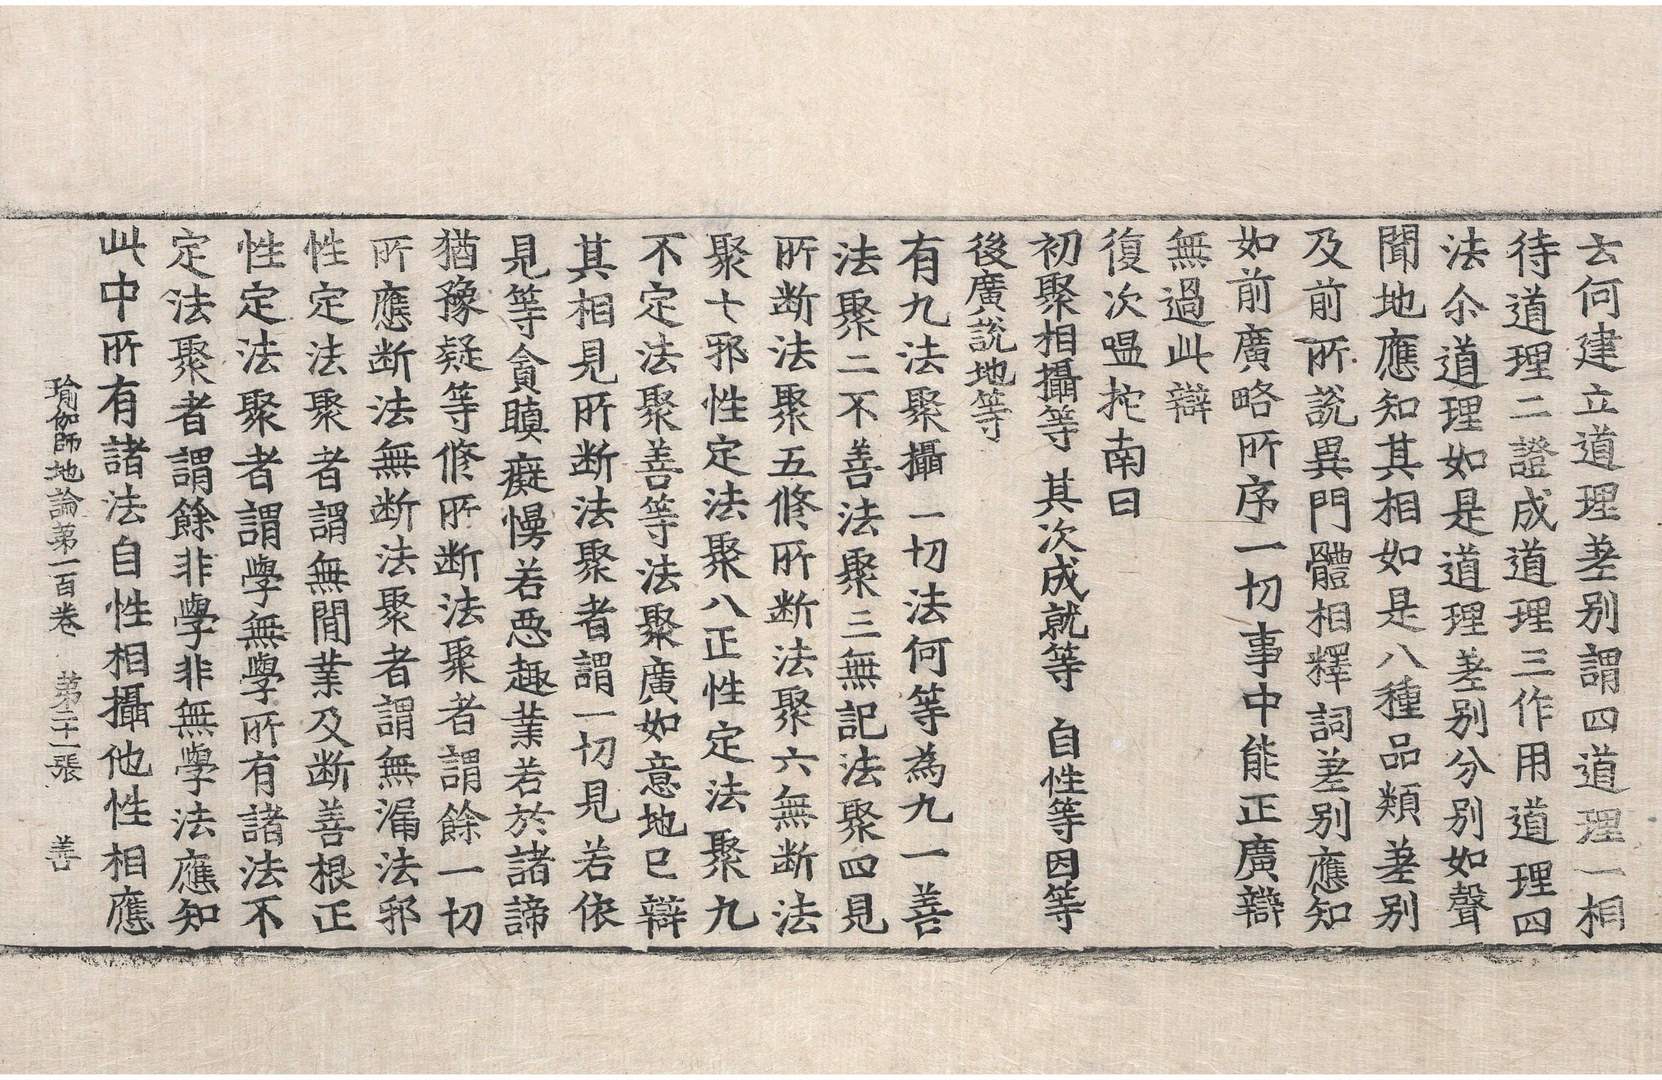 云何建立道理差别謂四道理一相
待道理二證成道理三作用道理四
法尒道理如是道理差别分别如聲
聞地應知其相如是八種品類差别
及前所說異門體相釋詞差别應知
如前廣略所序一切事中能正廣辯
無過此辯
復次嗢拕南曰
初聚相攝等 其次成就等 自性等因等
後廣說地等
有九法聚攝一切法何等為九一善
法聚二不善法聚三無記法聚四見
所断法聚五修所断法聚六無断法
聚七邪性定法聚八正性定法聚九
不定法聚善等法聚廣如意地已辯
其相見所断法聚者謂一切見若依
見等貪瞋癡慢若惡趣業若於諸諦
猶豫疑等修所断法聚者謂餘一切
所應断法無断法聚者謂無漏法邪
性定法聚者謂無間業及断善根正
性定法聚者謂學無學所有諸法不
定法聚者謂餘非學非無學法應知
此中所有諸法自性相攝他性相應
瑜伽師地論第一百卷 第二十一張 善